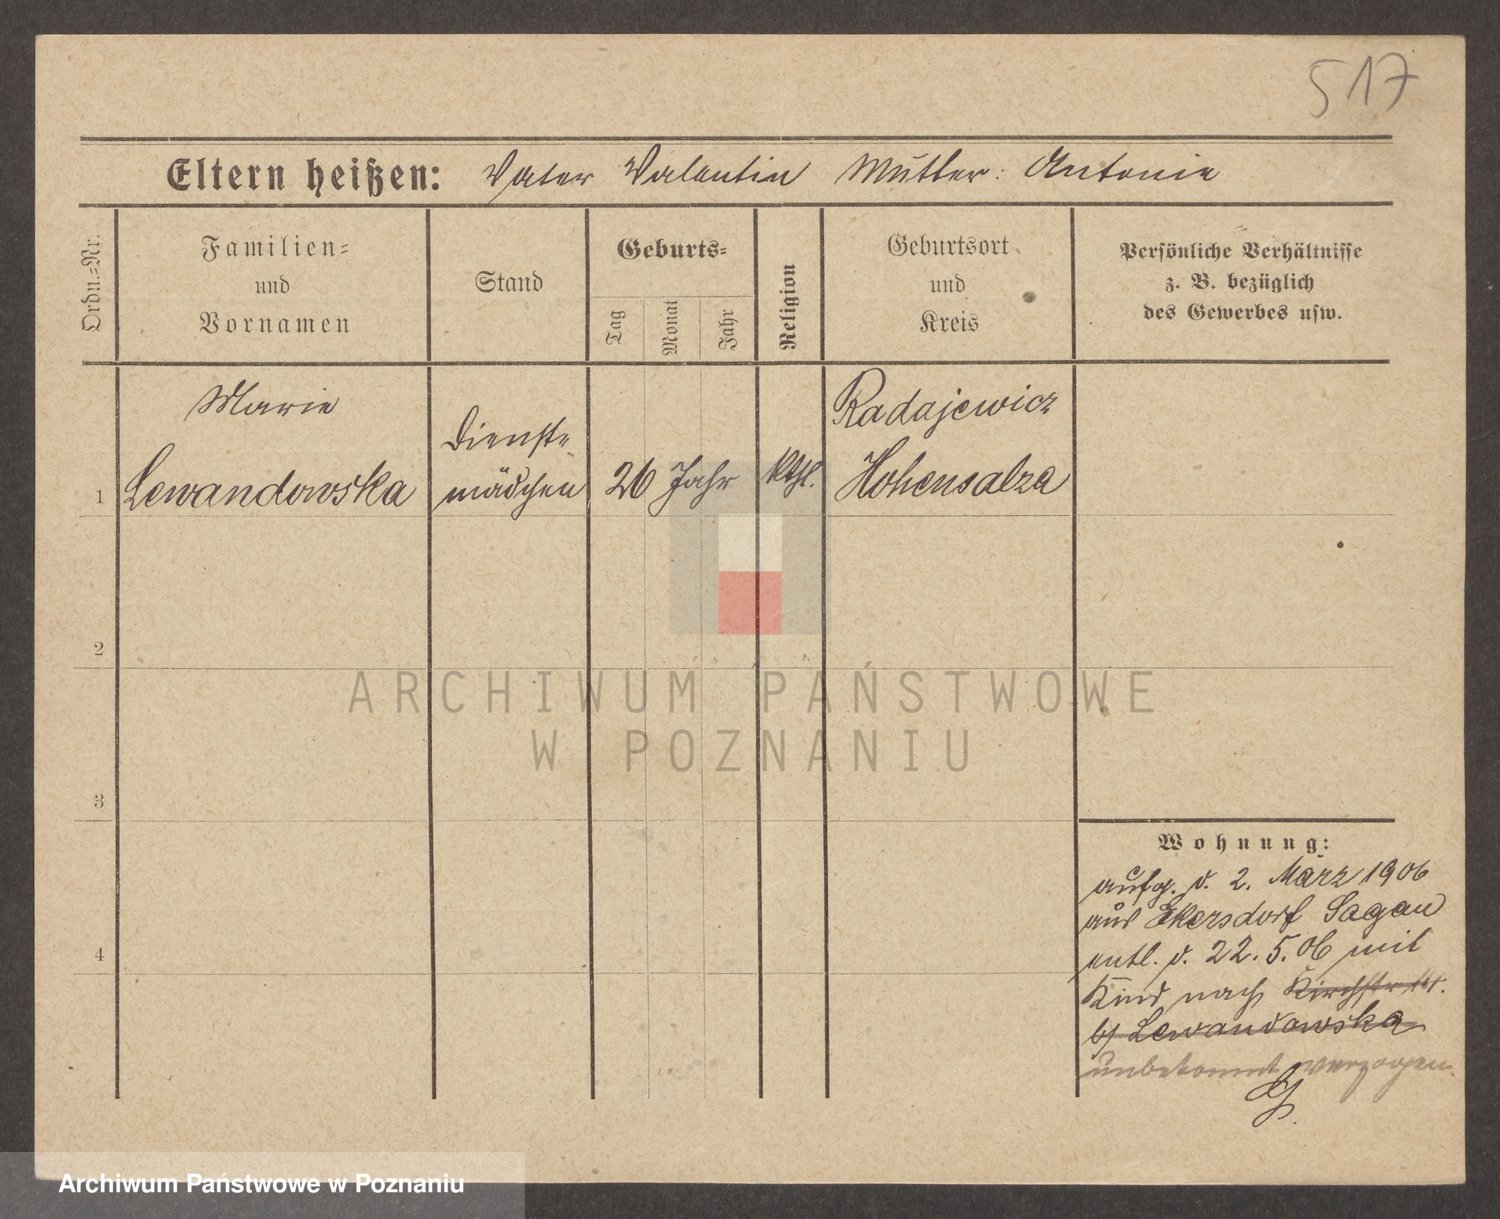 517
Eltern heißen: Vater Valentin Mutter: Antonie
Ordn.=Nr.
Familien=
und
Vornamen
Stand
Geburts=
Tag
Monat
Jahr
Religion
Geburtsort
und
Kreis
Persönliche Verhältnisse
z. B. bezüglich
des Gewerbes usw.
Marie
1 Lewandowska
Dienst=
mädchen
26 Jahr
kthl.
Radajewicz
Hohensalza
2
3
4
Wohnung:
aufg. d. 2. März 1906
aus Ekersdorf Sagan
entl. d. 22. 5. 06 mit
Kind nach Kirchstr.
b/ Lewandowska
unbekannt verzogen.
ARCHIWUM PAŃSTWOWE
W POZNANIU
Archiwum Państwowe w Poznaniu